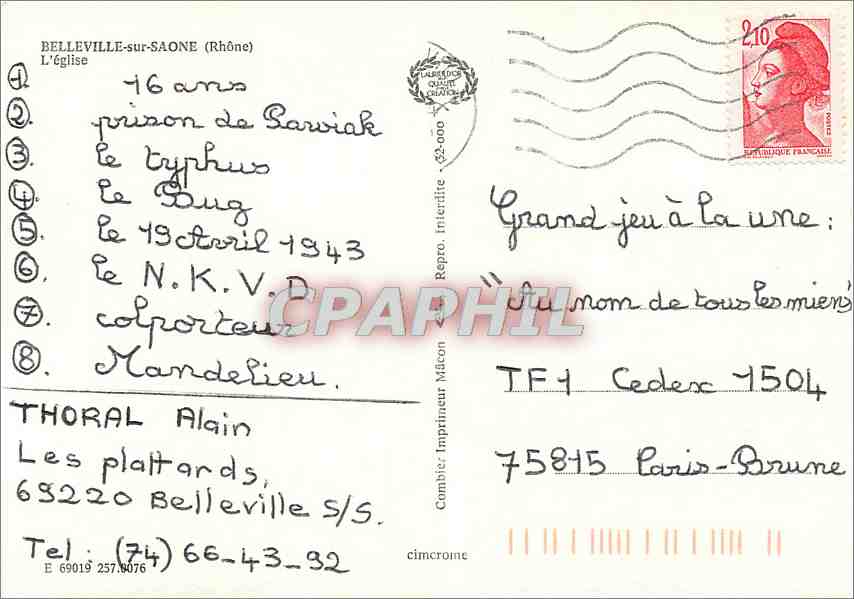 BELLEVILLE-sur-SAONE (Rhône)
L'église
① 16 ans
②. prison de Parviak
③. le typhus
④. le Bug
⑤. le 19 Avril 1943
⑥. le N.K.V.D
⑦. colporteur
⑧. Mandelieu.
THORAL Alain
Les plattards,
69220 Belleville s/S.
Tel : (74) 66-43-92
E 69019 257.0076
LAURIER D'OR
DE LA
QUALITÉ
CRÉATION
Combier Imprimeur Mâcon
Repro. Interdite - 32-000
cimcrome
2,10
POSTES
REPUBLIQUE FRANÇAISE
Grand jeu à la une :
"Au nom de tous les miens"
TF1 Cedex 1504
75815 Paris-Brune
CPAPHIL